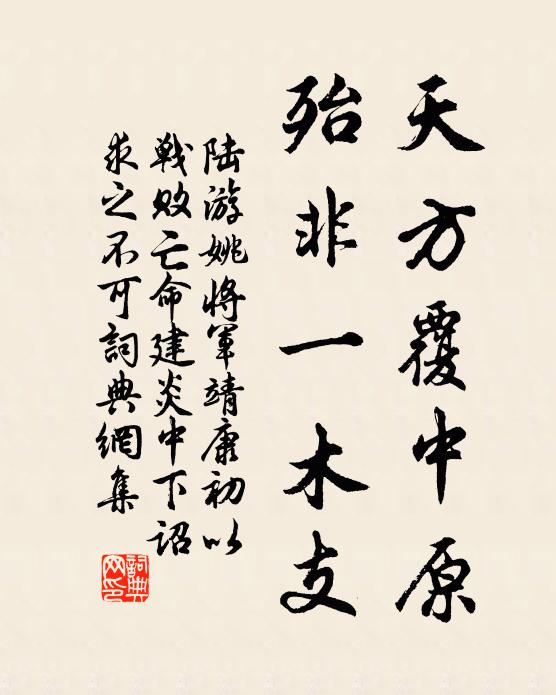 天方覆中原
殆非一木支
陆游姚將軍靖康初以
戰敗亡命建炎中下詔
求之不可詞典網集
詞典
网印